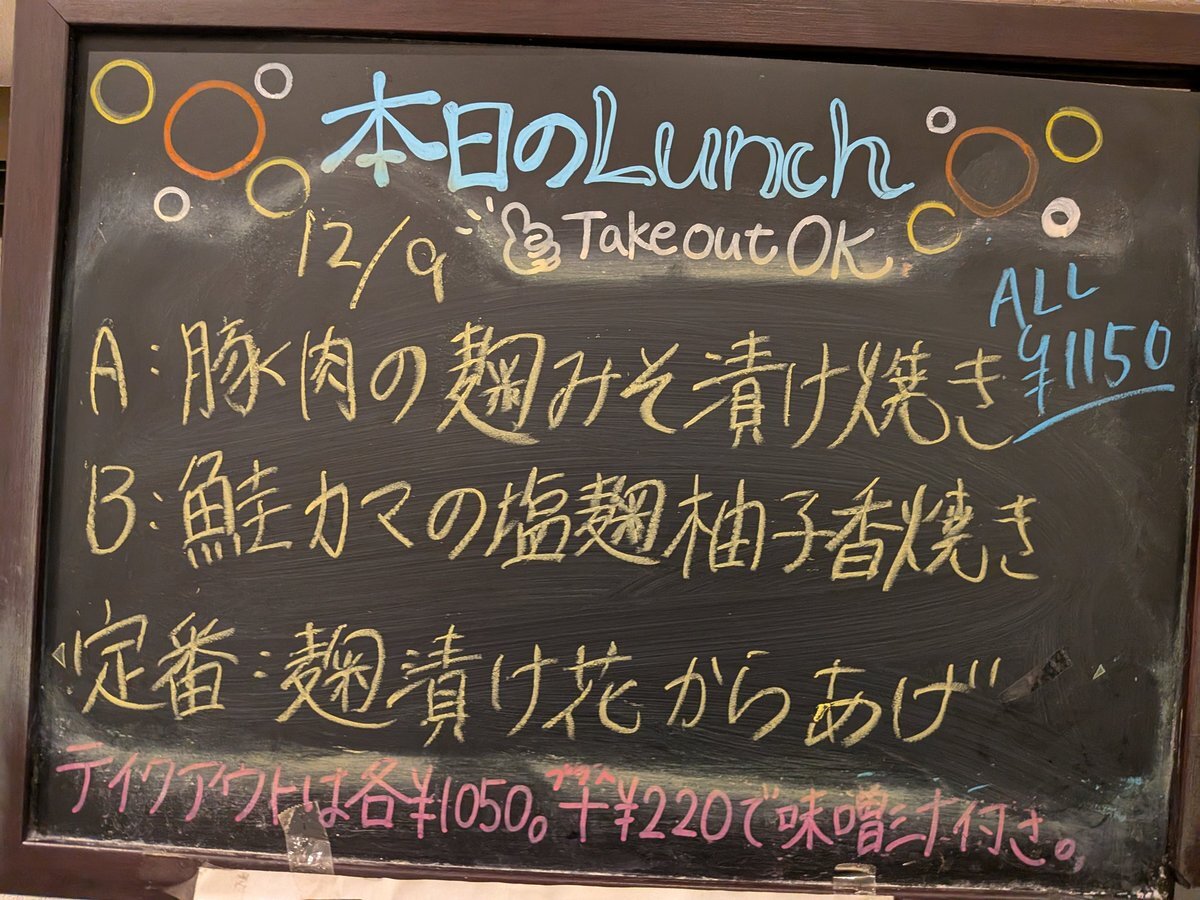 本日のLunch
12/9 Takeout OK
ALL
¥1150
A:豚肉の麹みそ漬け焼き
B:鮭カマの塩麹柚子香焼き
定番:麹漬け花からあげ
テイクアウトは各¥1050。+¥220で味噌汁付き。